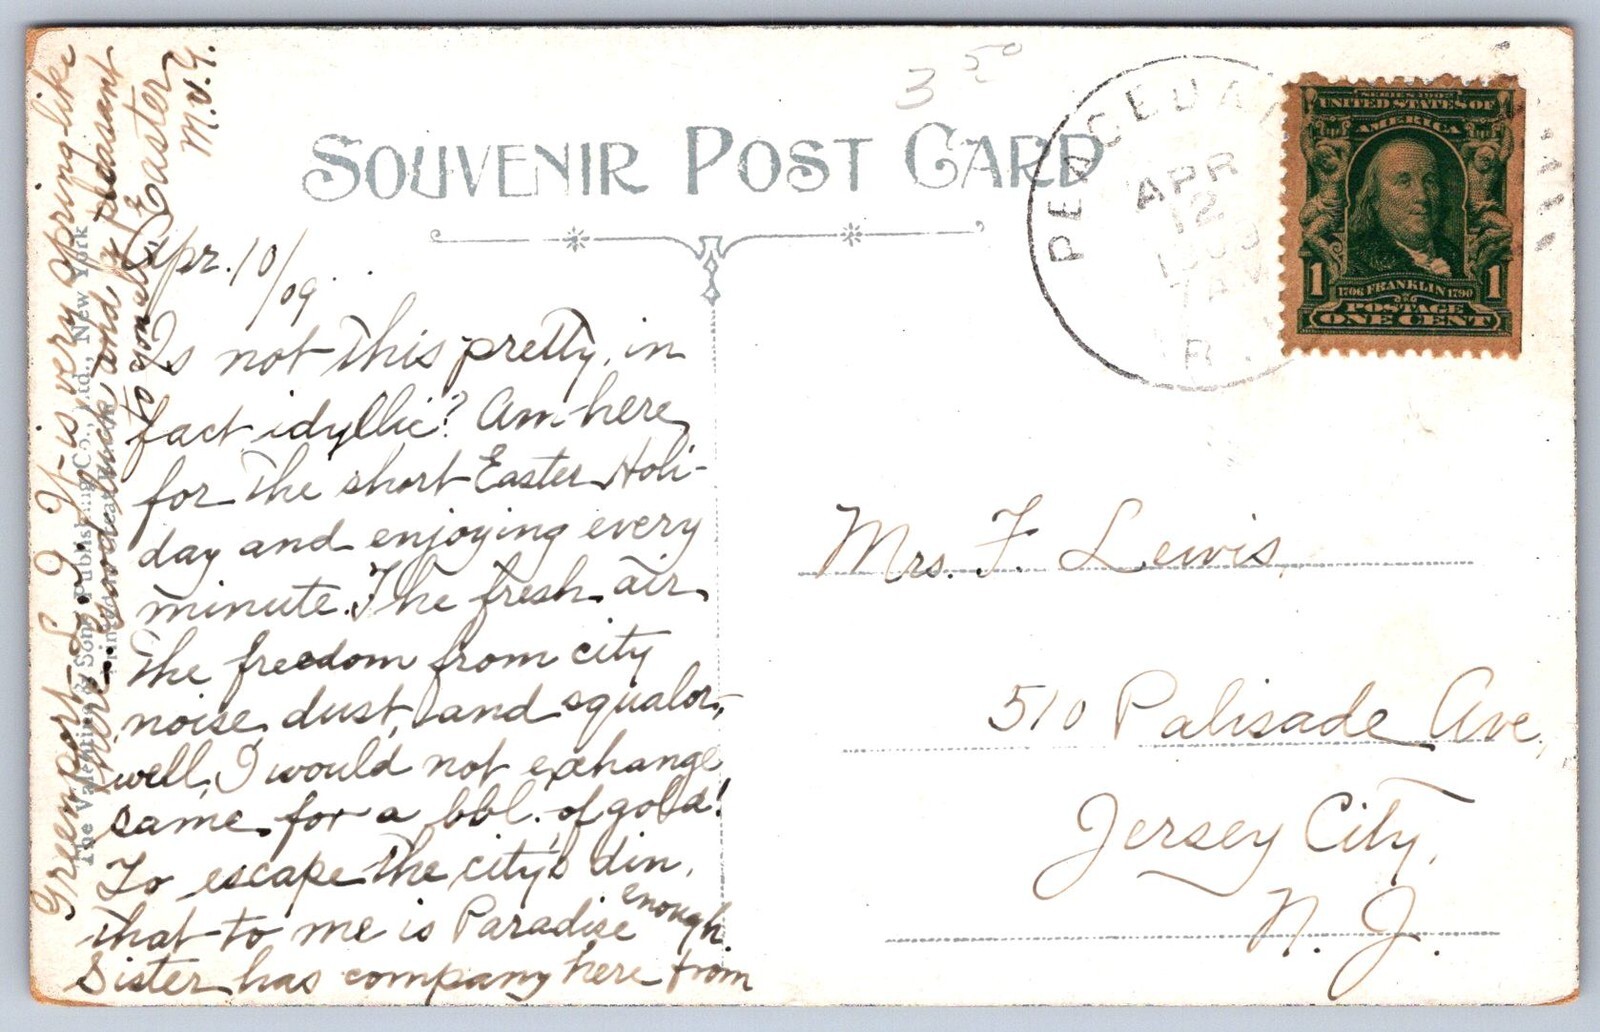 SOUVENIR POST CARD
3 50
PEACEDA
APR
12
1909
7 AM
R.
SERIES 1902
UNITED STATES OF
AMERICA
1 1706 FRANKLIN 1790 1
POSTAGE
ONE CENT
Apr. 10/09
Is not this pretty, in
fact idyllic? Am here
for the short Easter Holi-
day and enjoying every
minute. The fresh air,
the freedom from city
noise, dust, and squalor,
well, I would not exchange
same for a bbl. of gold!
To escape the city's din,
that to me is Paradise enough.
Sister has company here from
Greenport L. I. It is very spring-like
here. Good luck and a pleasant
Easter
to you
M.V.G.
The Valentine & Sons Publishing Co., Ltd., New York
Printed
Mrs. F. Lewis,
510 Palisade Ave,
Jersey City,
N. J.